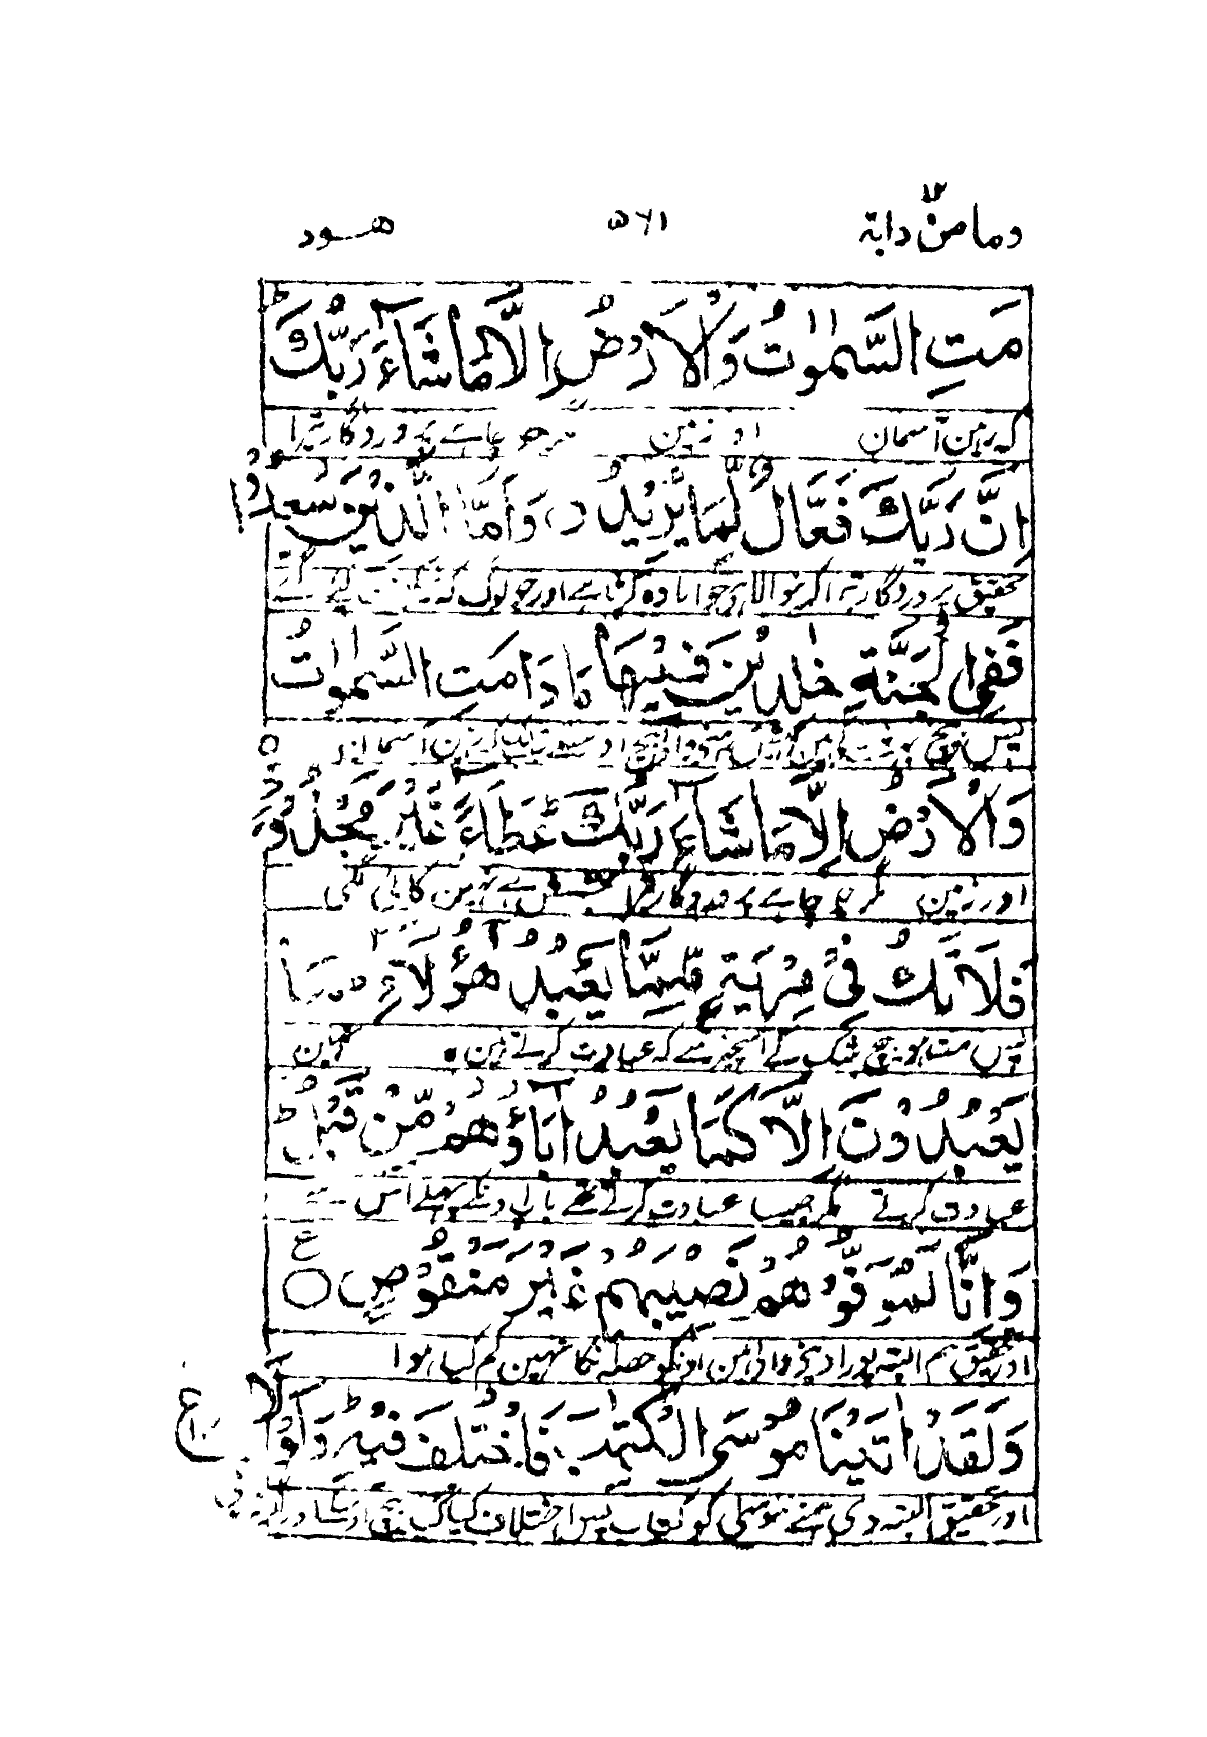 وما من دابة ۱۲
۵۶۱
هود
مَتِ السَّمٰوٰتُ وَالْاَرْضُ اِلَّا مَا شَآءَ رَبُّكَ ؕ
کہ رہین آسمان اور زمین مگر جو چاہے پروردگار تیرا
اِنَّ رَبَّكَ فَعَّالٌ لِّمَا يُرِيْدُ وَاَمَّا الَّذِيْنَ سُعِدُوْا
تحقیق پروردگار تیرا کرنیوالا ہی جو ارادہ کرتا ہے اور جو لوگ کہ نیکبخت کیے گئے
فَفِى الْجَنَّةِ خٰلِدِيْنَ فِيْهَا مَا دَامَتِ السَّمٰوٰتُ
پس بیچ بہشت کے ہین
وَالْاَرْضُ اِلَّا مَا شَآءَ رَبُّكَ ؕ عَطَآءً غَيْرَ مَجْذُوْذٍ ○
اور زمین مگر جو چاہے پروردگار تیرا بخشش ہے نہین کاٹی گئی
فَلَا تَكُ فِىْ مِرْيَةٍ مِّمَّا يَعْبُدُ هٰٓؤُلَآءِ ؕ مَا
پس مت ہو بیچ شک کے اسچیز سے کہ عبادت کرتے ہین یہ نہین
يَعْبُدُوْنَ اِلَّا كَمَا يَعْبُدُ اٰبَآؤُهُمْ مِّنْ قَبْلُ ؕ
عبادت کرتے مگر جیسا عبادت کرتے تھے باپ اونکے پہلے اس سے
وَاِنَّا لَمُوَفُّوْهُمْ نَصِيْبَهُمْ غَيْرَ مَنْقُوْصٍ ○ ع
اور تحقیق ہم البتہ پورا دینیوالے ہین اونکو حصہ اونکا نہین کم کیا ہوا
وَلَقَدْ اٰتَيْنَا مُوْسَى الْكِتٰبَ فَاخْتُلِفَ فِيْهِ ؕ وَلَوْلَا
اور تحقیق البتہ دی ہمنے موسٰی کو کتاب پس اختلاف کیا گیا بیچ اوسکے اور اگر نہ